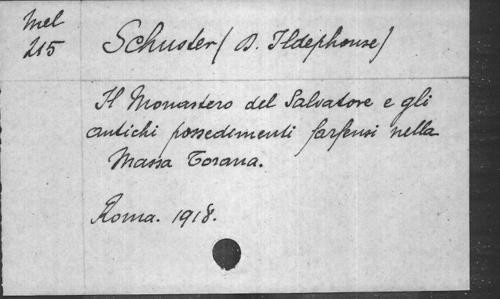 Mel
215
Schuster (D. Ildephonse)
Il Monastero del Salvatore e gli
antichi possedimenti farfensi nella
Massa Torana.
Roma. 1918.